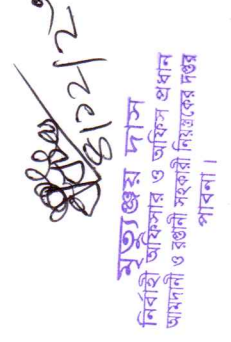 ৪/১২/২
মৃত্যুঞ্জয় দাস
নির্বাহী অফিসার ও অফিস প্রধান
আমদানী ও রপ্তানী সহকারী নিয়ন্ত্রকের দপ্তর
পাবনা।